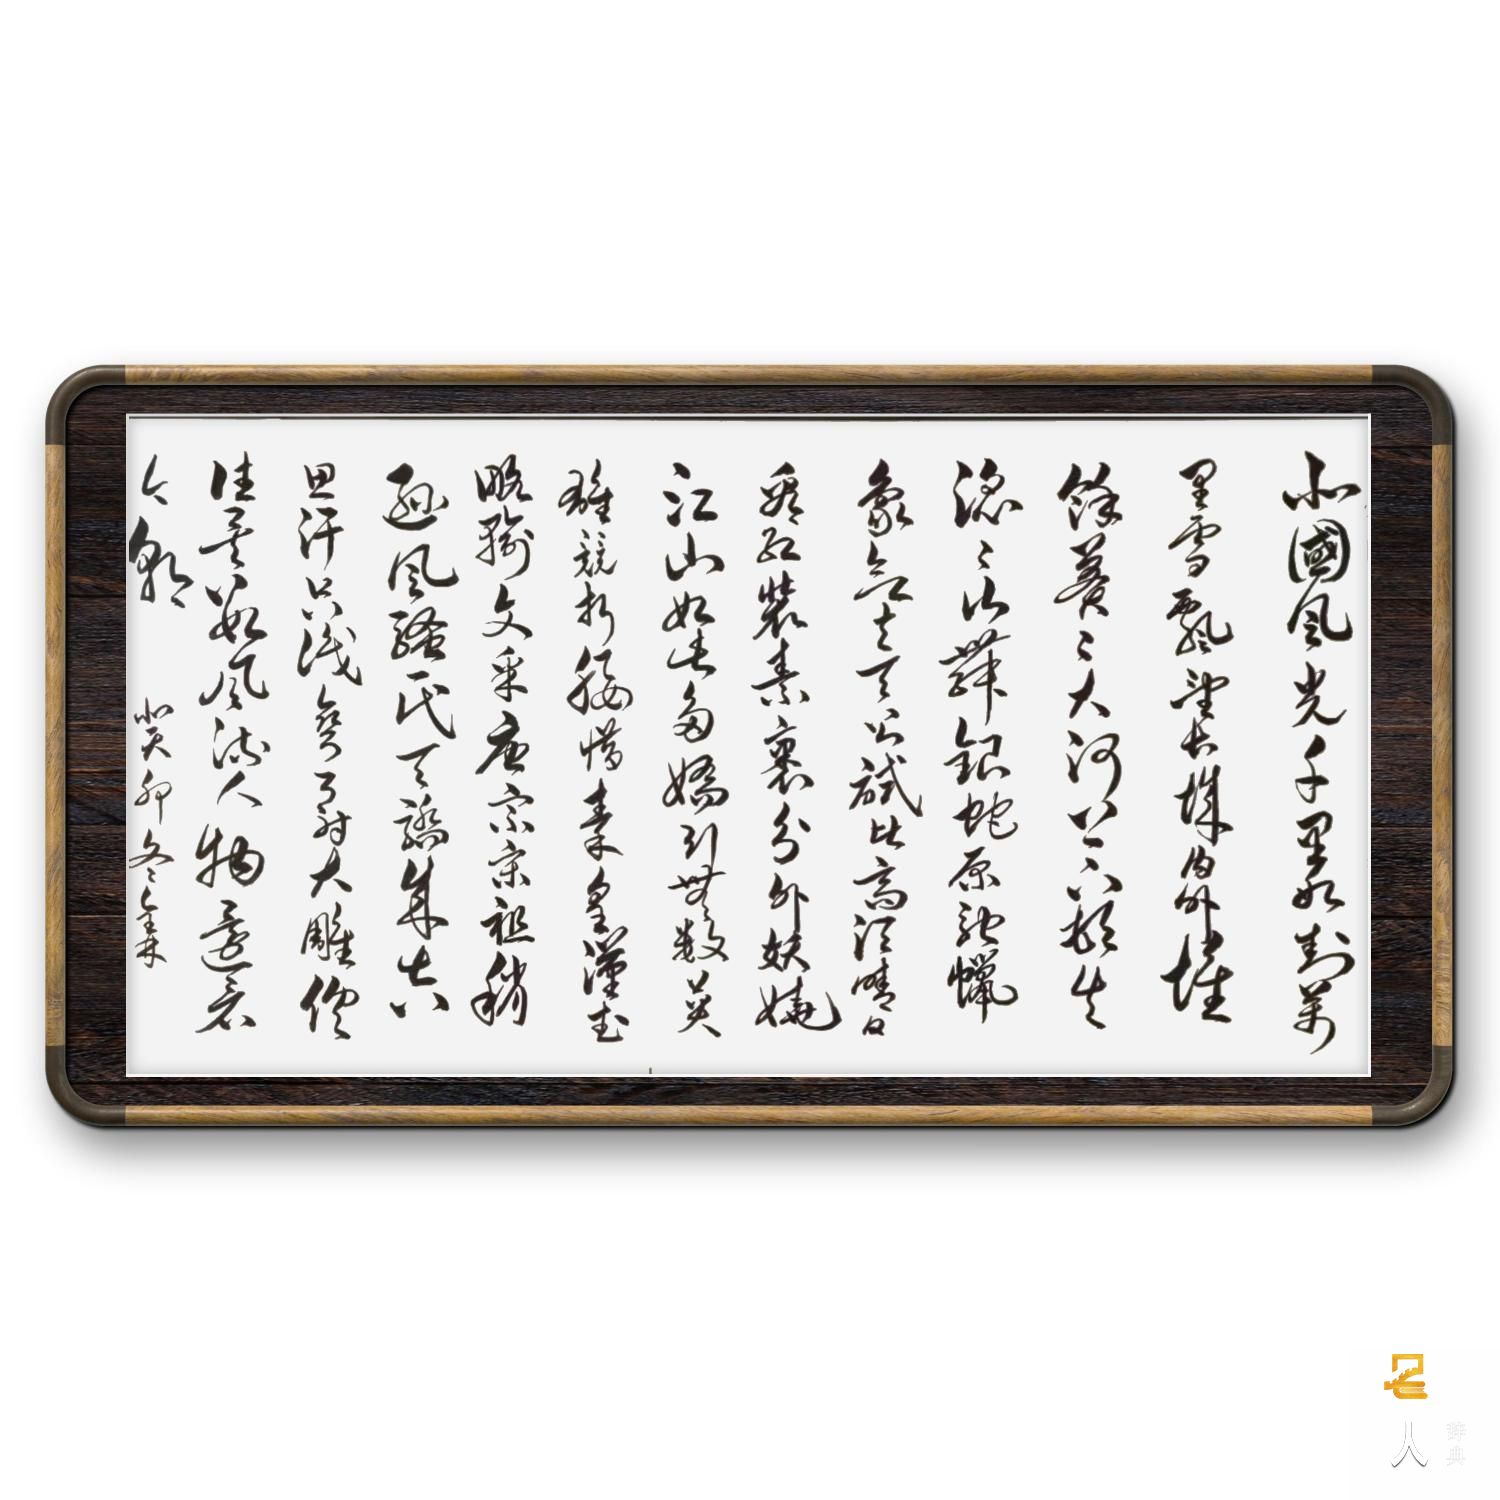 北國風光千里冰封萬
里雪飄望長城内外惟
餘莽〻大河上下頓失
滔〻山舞銀蛇原馳蠟
象欲与天公試比高須晴日
看紅裝素裹分外妖嬈
江山如此多嬌引無數英
雄競折腰惜秦皇漢武
略輸文采唐宗宋祖稍
遜風騷一代天驕成吉
思汗只識彎弓射大雕俱
往矣數風流人物還看
今朝
癸卯冬
人
辞典